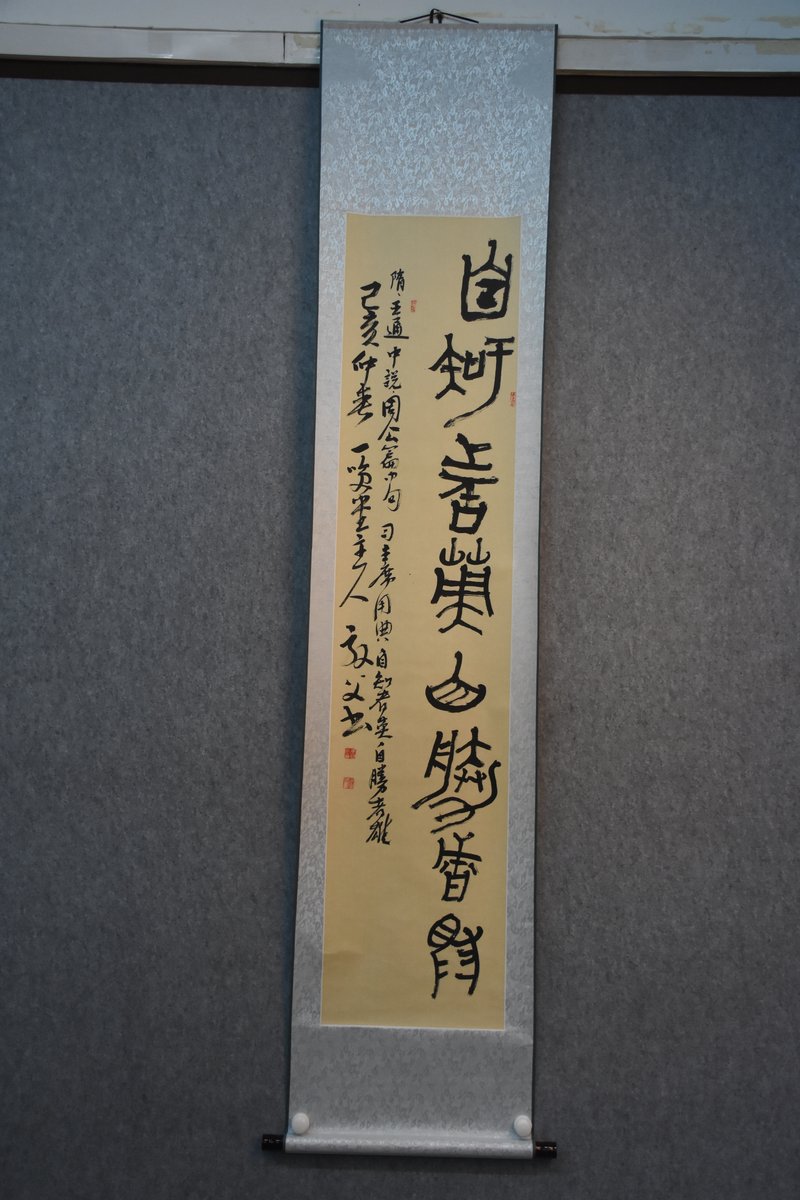 自知者英自勝者雄
隋、王通中說周公篇中句習主席用典自知者英自勝者雄
己亥仲春一笑堂主人敬父书